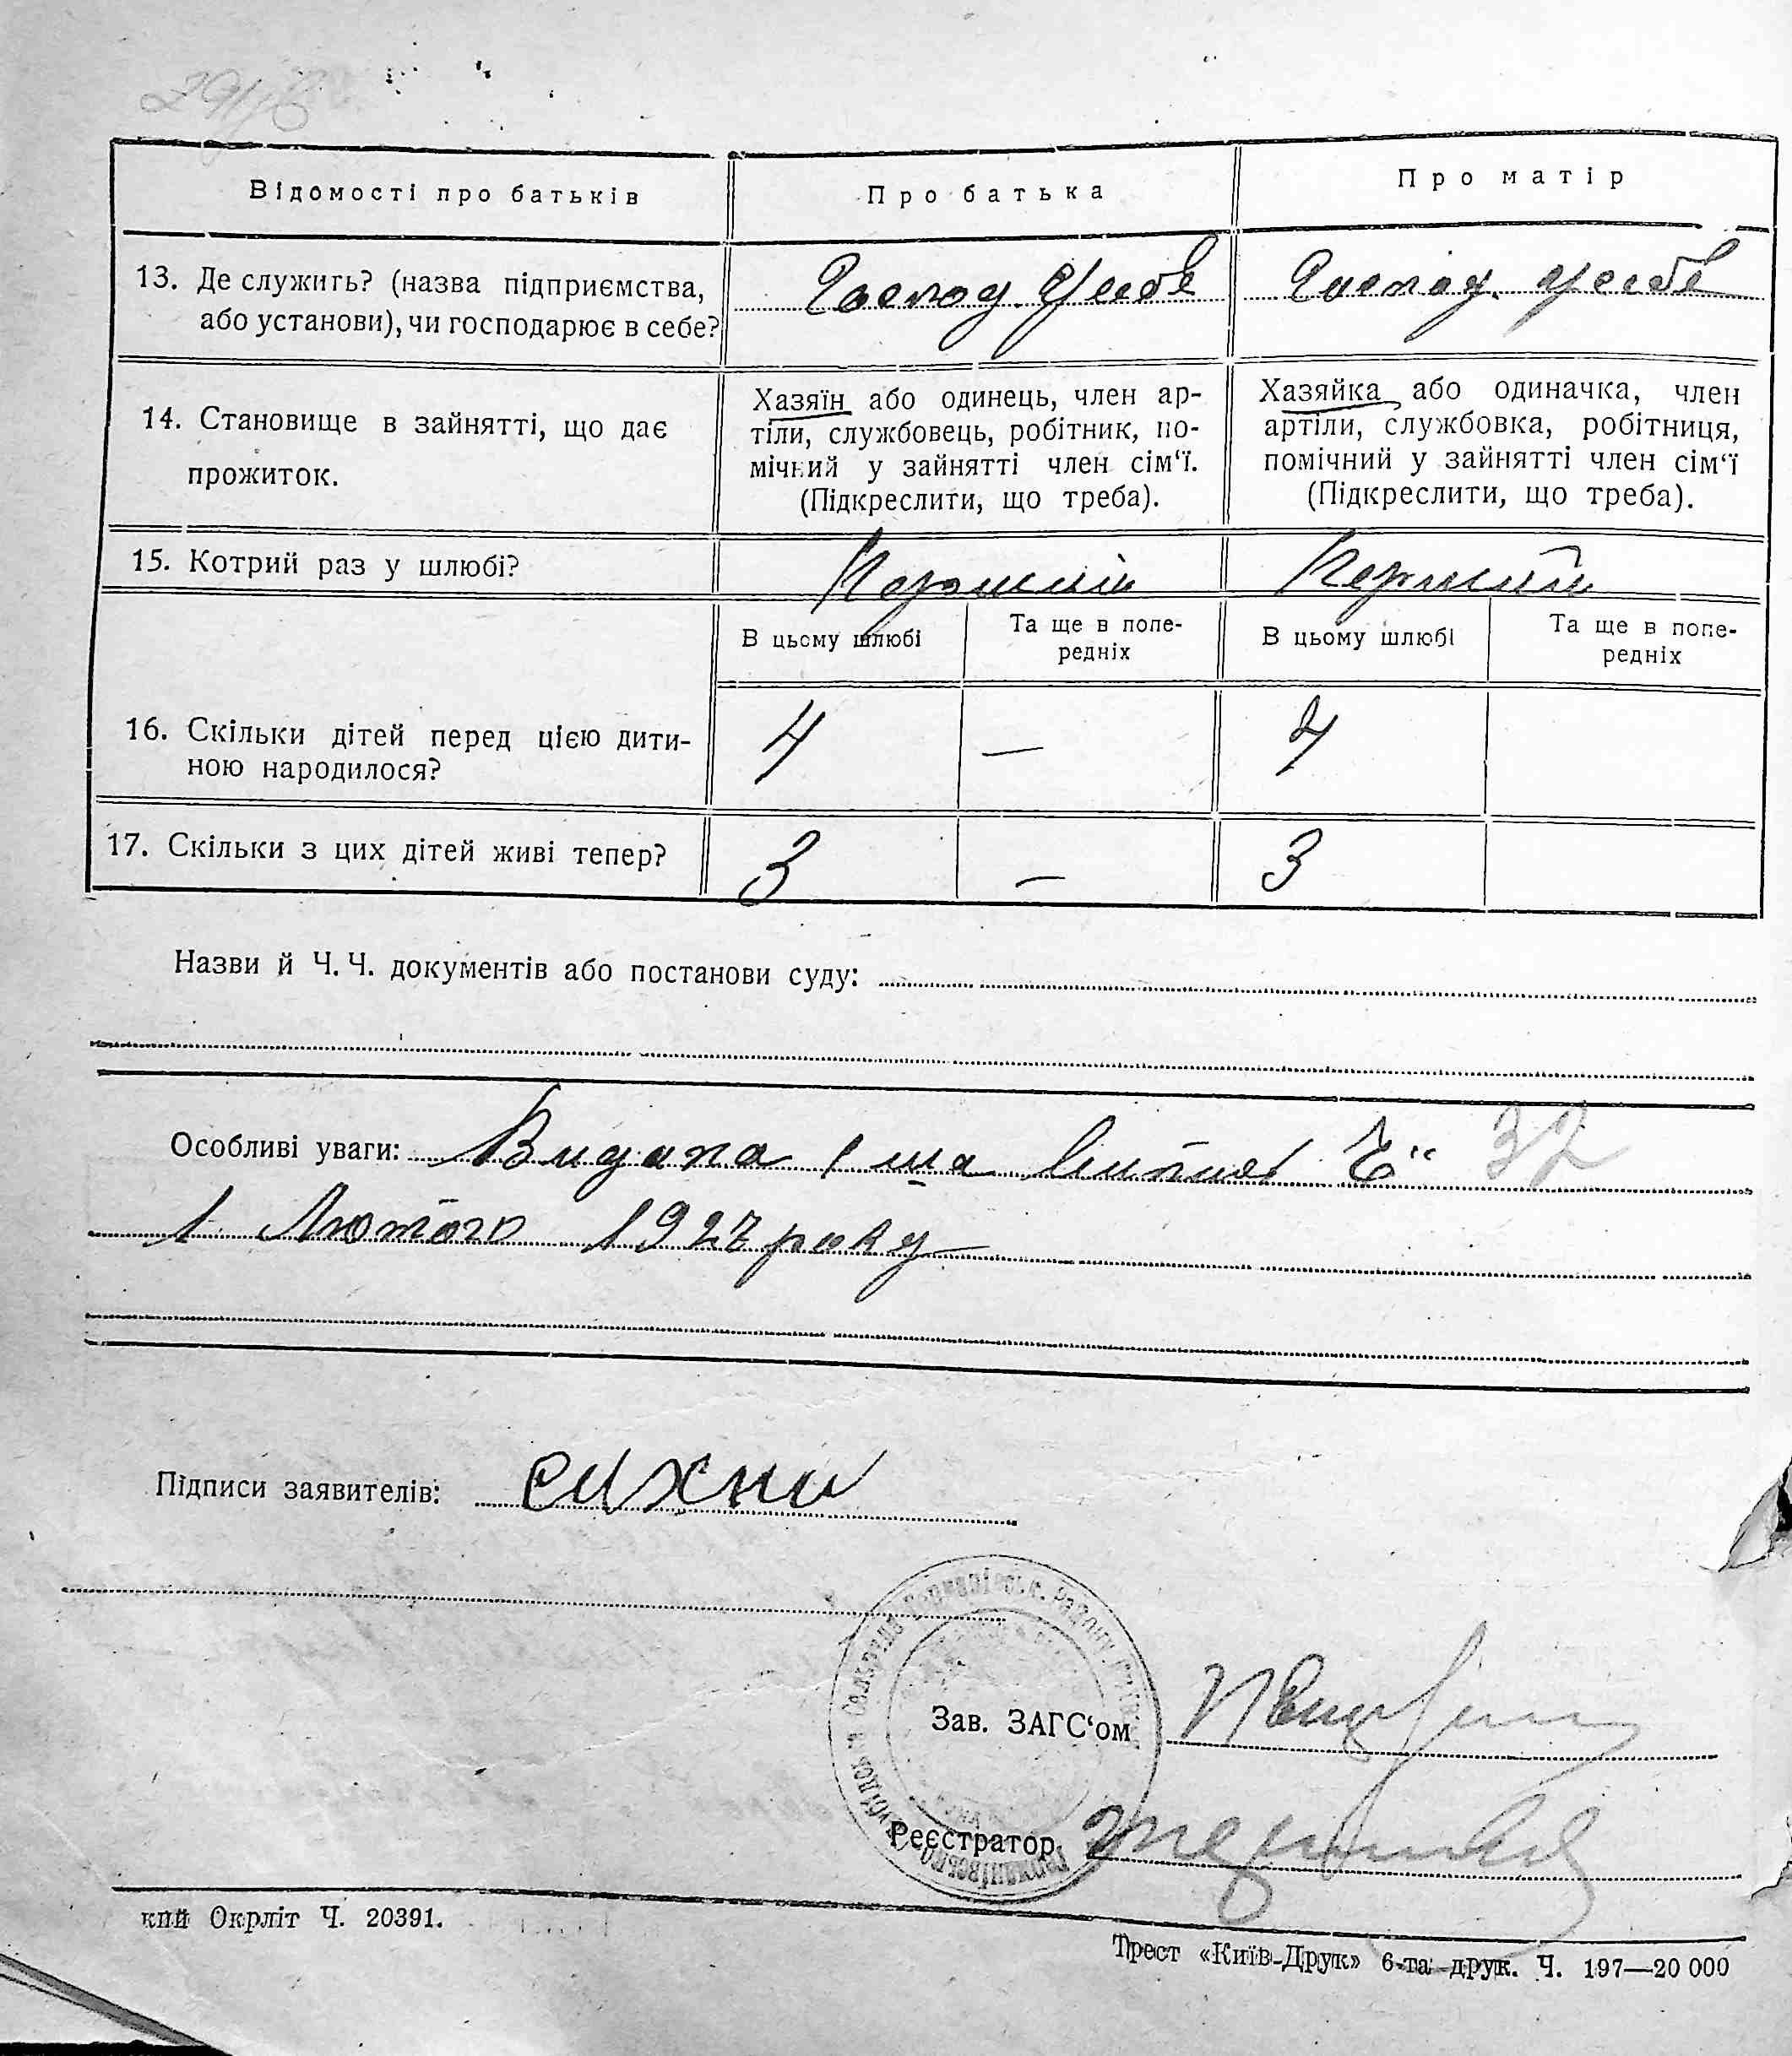 Відомості про батьків
Про батька
Про матір
13. Де служить? (назва підприємства,
або установи), чи господарює в себе?
Господ. у себе
Господ. у себе
14. Становище в зайнятті, що дає
прожиток.
Хазяїн або одинець, член ар-
тіли, службовець, робітник, по-
мічний у зайнятті член сім‘ї.
(Підкреслити, що треба).
Хазяйка або одиначка, член
артіли, службовка, робітниця,
помічний у зайнятті член сім‘ї
(Підкреслити, що треба).
15. Котрий раз у шлюбі?
Перший
Перший
В цьому шлюбі
Та ще в попе-
редніх
В цьому шлюбі
Та ще в попе-
редніх
16. Скільки дітей перед цією дити-
ною народилося?
4
—
4
17. Скільки з цих дітей живі тепер?
3
—
3
Назви й Ч. Ч. документів або постанови суду:
Особливі уваги: Видана 1 ша 32
1 Лютого 1927 року
Підписи заявителів:
Зав. ЗАГС‘ом
Реєстратор
кий Окрліт Ч. 20391.
Трест «Київ-Друк» 6-та друк. Ч. 197—20 000